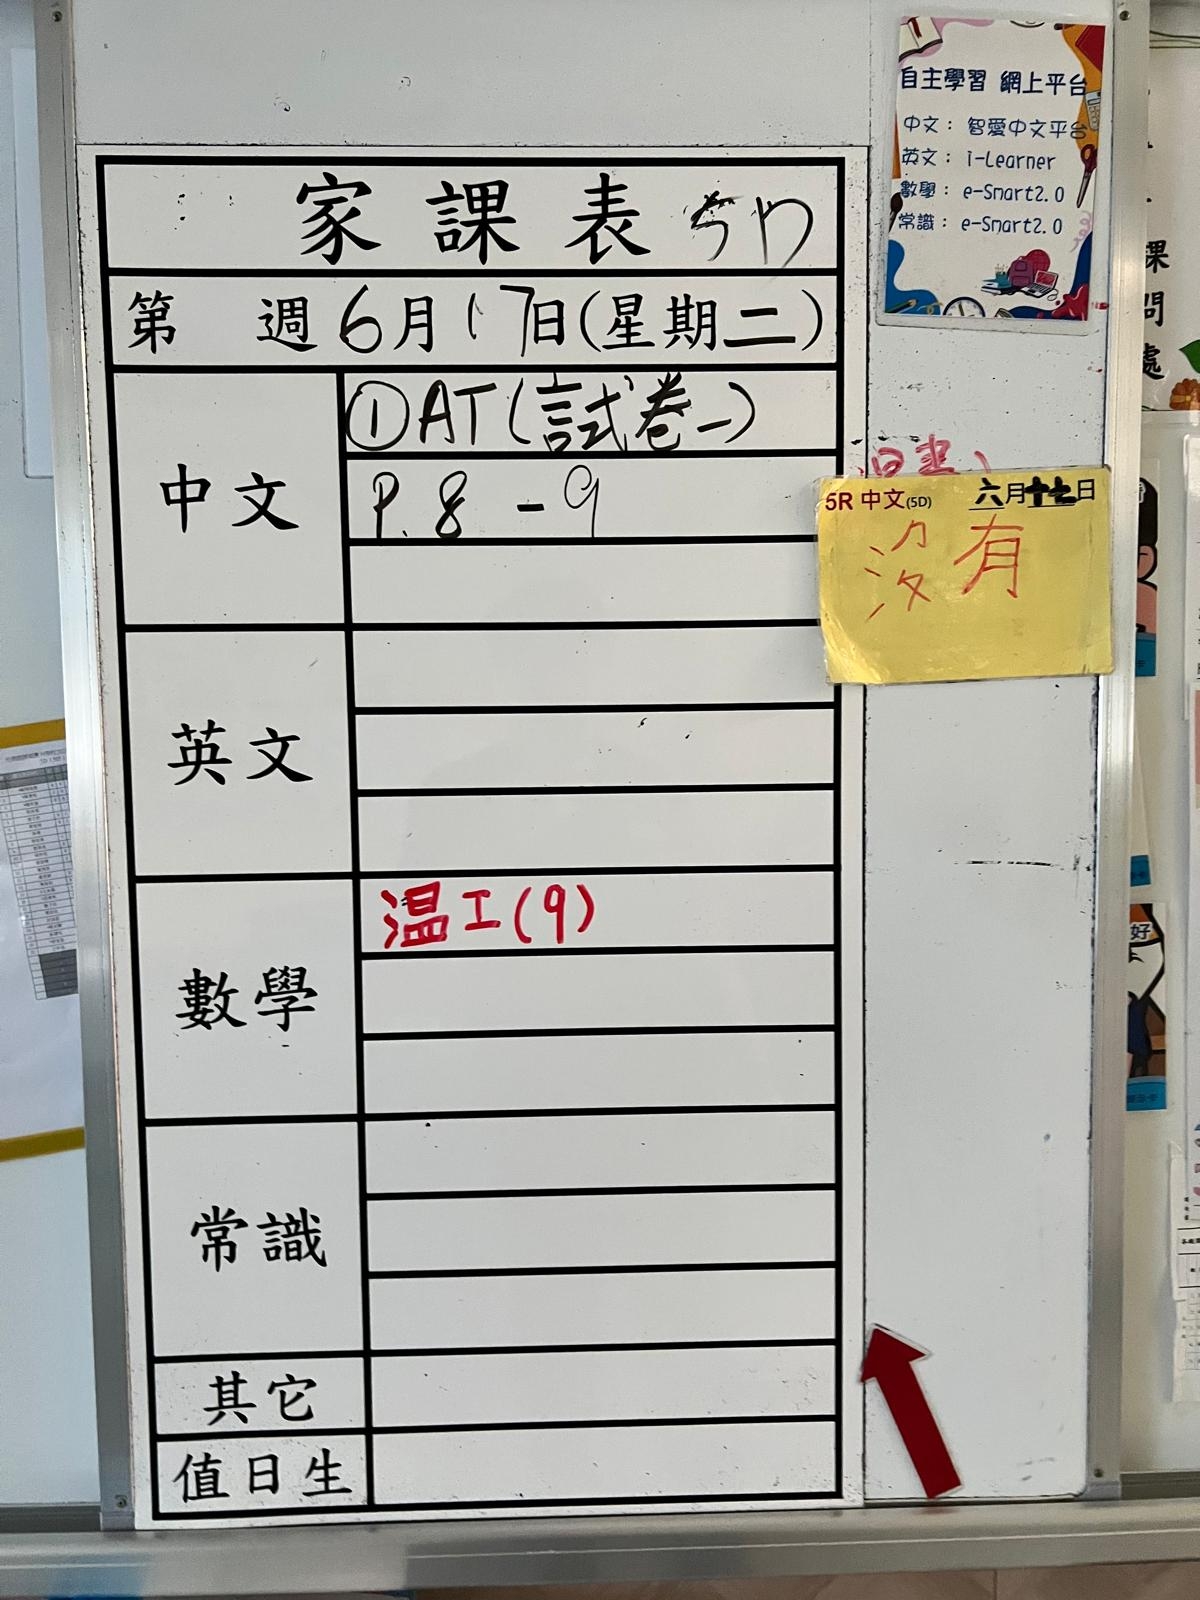 自主學習 網上平台
中文： 智愛中文平台
英文： i-Learner
數學： e-Smart2.0
常識： e-Smart2.0
家課表 5D
第 週 6月17日(星期二)
中文
①AT(試卷一)
P. 8 - 9
5R 中文(5D) 六月十七日
沒有
英文
數學
温工(9)
常識
其它
值日生
課
問
處
好